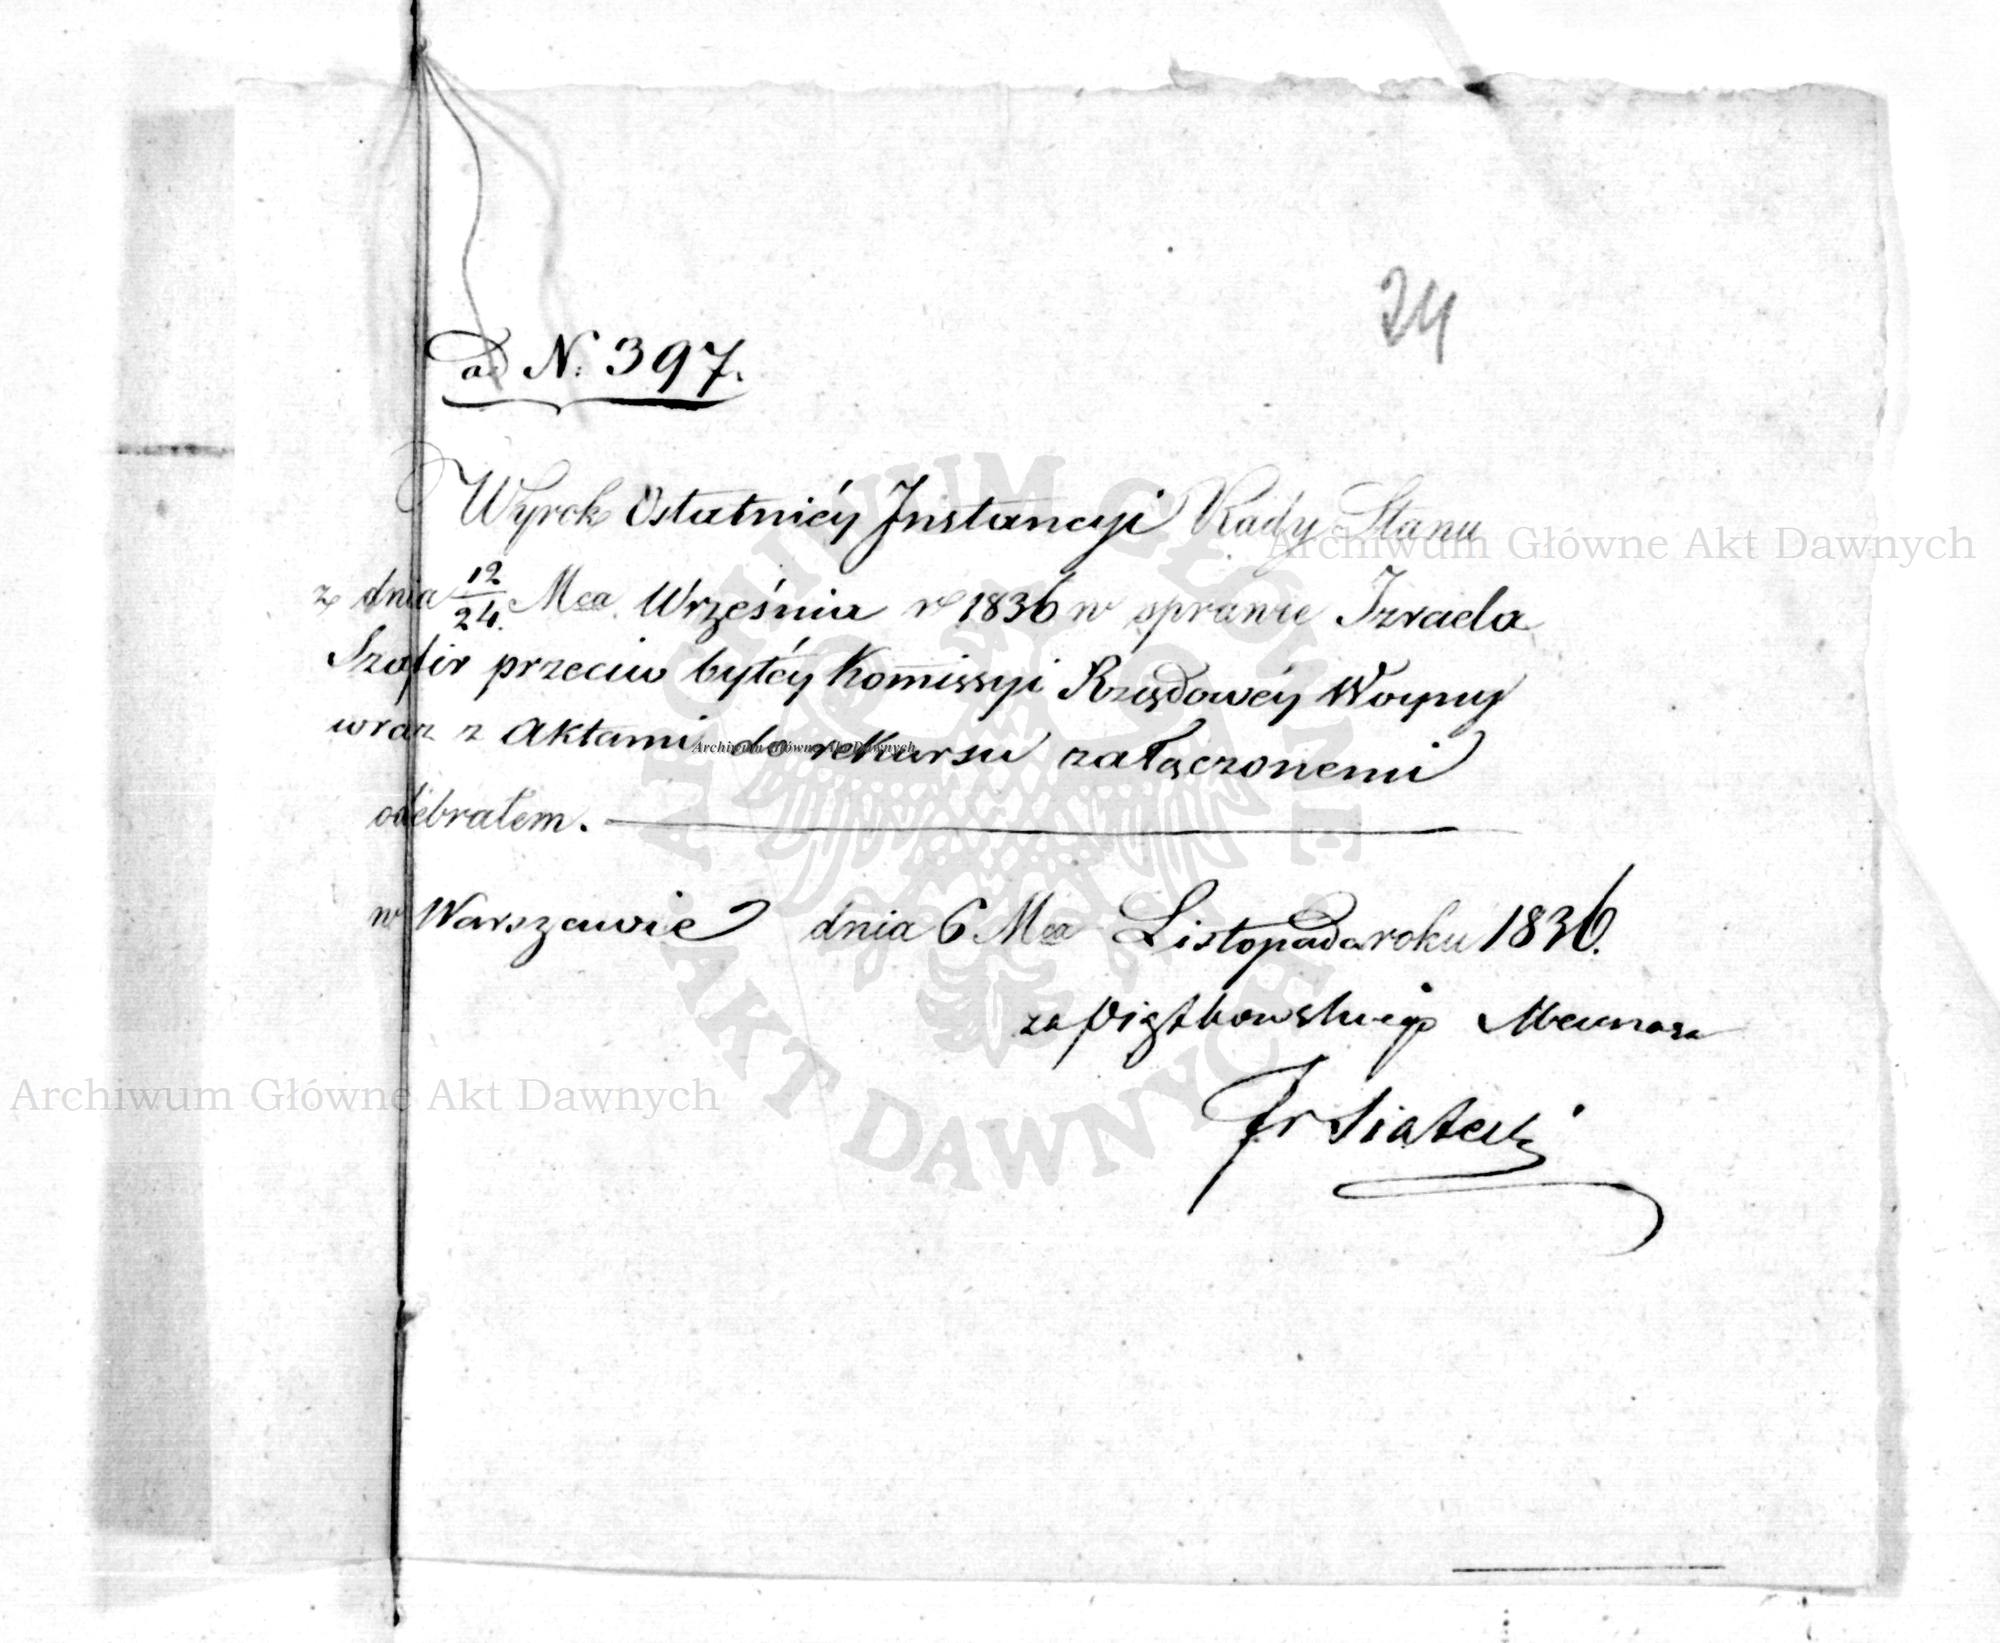 24
ad N: 397.
Wyrok Ostatniéy Instancyi Rady Stanu
z dnia 12/24. Mca Września r 1836 w sprawie Izraela
Szafir przeciw byłéy Kommissyi Rządowéy Woyny
wraz z Aktami do rekursu załączonemi
odebrałem.
w Warszawie dnia 6 Mca Listopada roku 1836.
za Piątkowskiego Mecenasa
Fr
Archiwum Główne Akt Dawnych
Archiwum Główne Akt Dawnych
Archiwum Główne Akt Dawnych
ARCHIWUM GŁÓWNE
AKT DAWNYCH